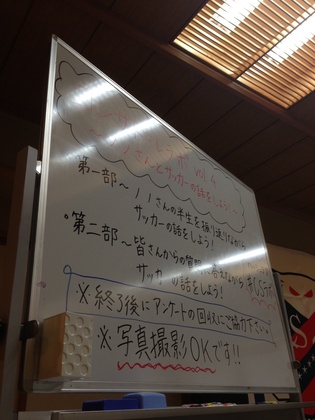 vol.4
さんとサッカーの話をしよう
第一部〜ノノさんの半生を振り返りながら
サッカーの話をしよう!
第二部〜皆さんからの質問に答えながら
サッカーの話をしよう!
※終了後にアンケートの回収にご協力下さい
※写真撮影OKです!!